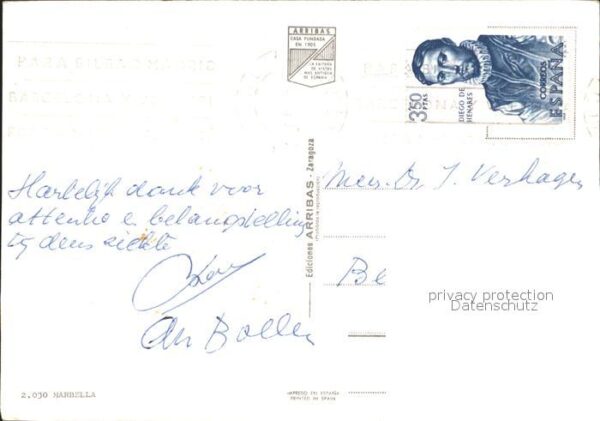 ARRIBAS
CASA FUNDADA
EN 1905
LA EDITORA
DE VISTAS
MAS ANTIGUA
DE ESPAÑA
3,50
PTAS
DIEGO DE
HENARES
CORREOS
ESPAÑA
PARA BILBAO MADRID
BARCELONA
Hartelijk dank voor
attentie en belangstelling
tijdens ziekte
An Bollen
Ediciones ARRIBAS - Zaragoza
Mevr. Dr. J. Verhagen
Be
privacy protection
Datenschutz
2.030 MARBELLA
IMPRESO EN ESPAÑA
PRINTED IN SPAIN